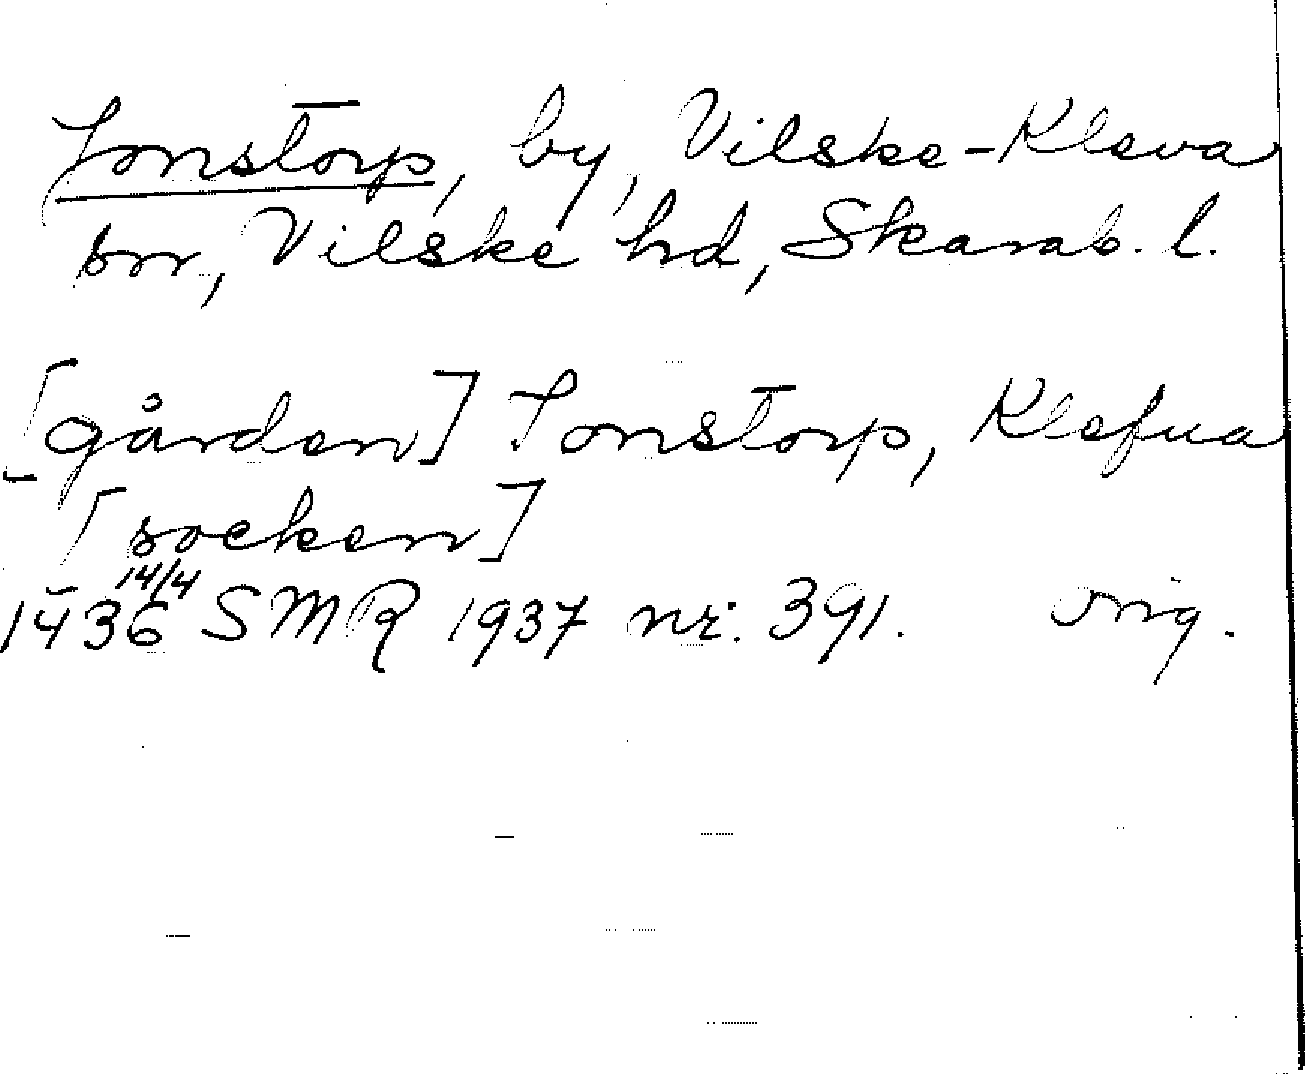 Jonstorp, by, Vilske-Kleva
sn, Vilske hd, Skarab. l.
[gården] Jonstorp, Klefua
[socken]
1436 14/4 SMR 1937 nr. 391. orig.